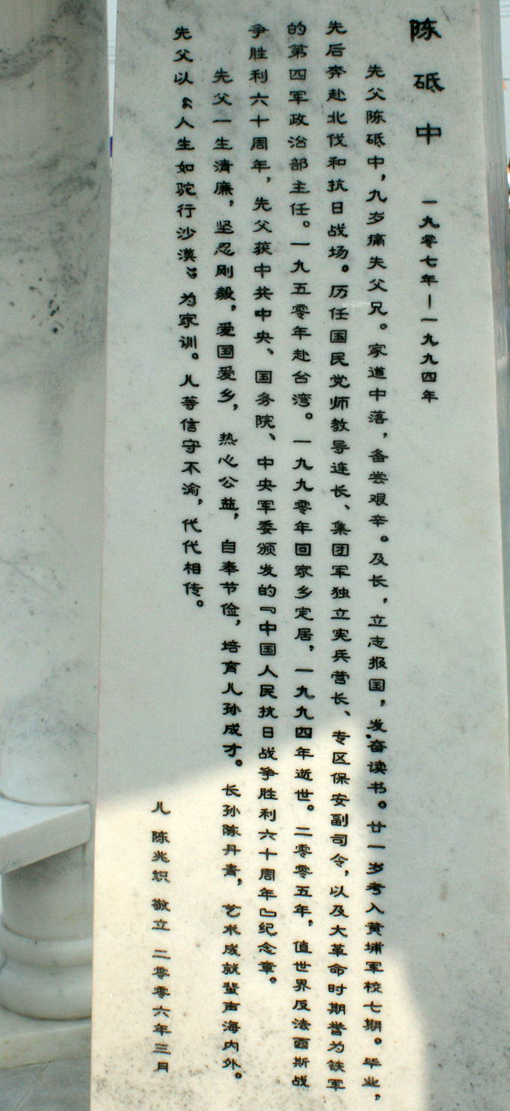 陈砥中 一九零七年—一九九四年
先父陈砥中,九岁痛失父兄。家道中落,备尝艰辛。及长,立志报国,发奋读书。廿一岁考入黄埔军校七期。毕业,
先后奔赴北伐和抗日战场。历任国民党师教导连长、集团军独立宪兵营长、专区保安副司令,以及大革命时期誉为铁军
的第四军政治部主任。一九五零年赴台湾。一九九零年回家乡定居,一九九四年逝世。二零零五年,值世界反法西斯战
争胜利六十周年,先父获中共中央、国务院、中央军委颁发的『中国人民抗日战争胜利六十周年』纪念章。
先父一生清廉,坚忍刚毅,爱国爱乡,热心公益,自奉节俭,培育儿孙成才。长孙陈丹青,艺术成就蜚声海内外。
先父以“人生如驼行沙漠”为家训。儿等信守不渝,代代相传。
儿 陈兆炽 敬立 二零零六年三月